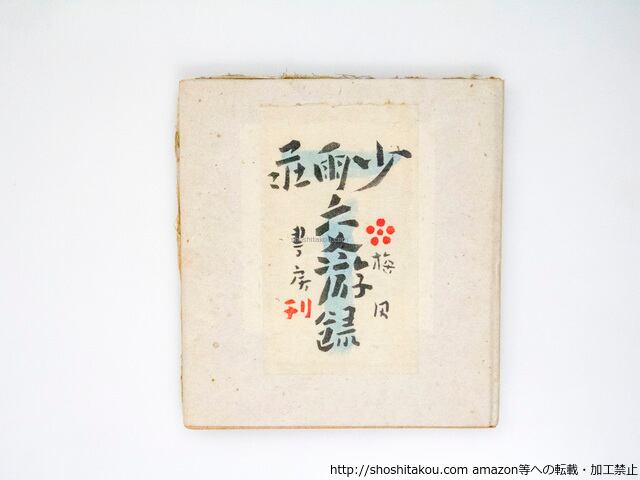 少雨庄
交游録
梅田
書房
刊
shoshitakou.com
http://shoshitakou.com amazon等への転載・加工禁止